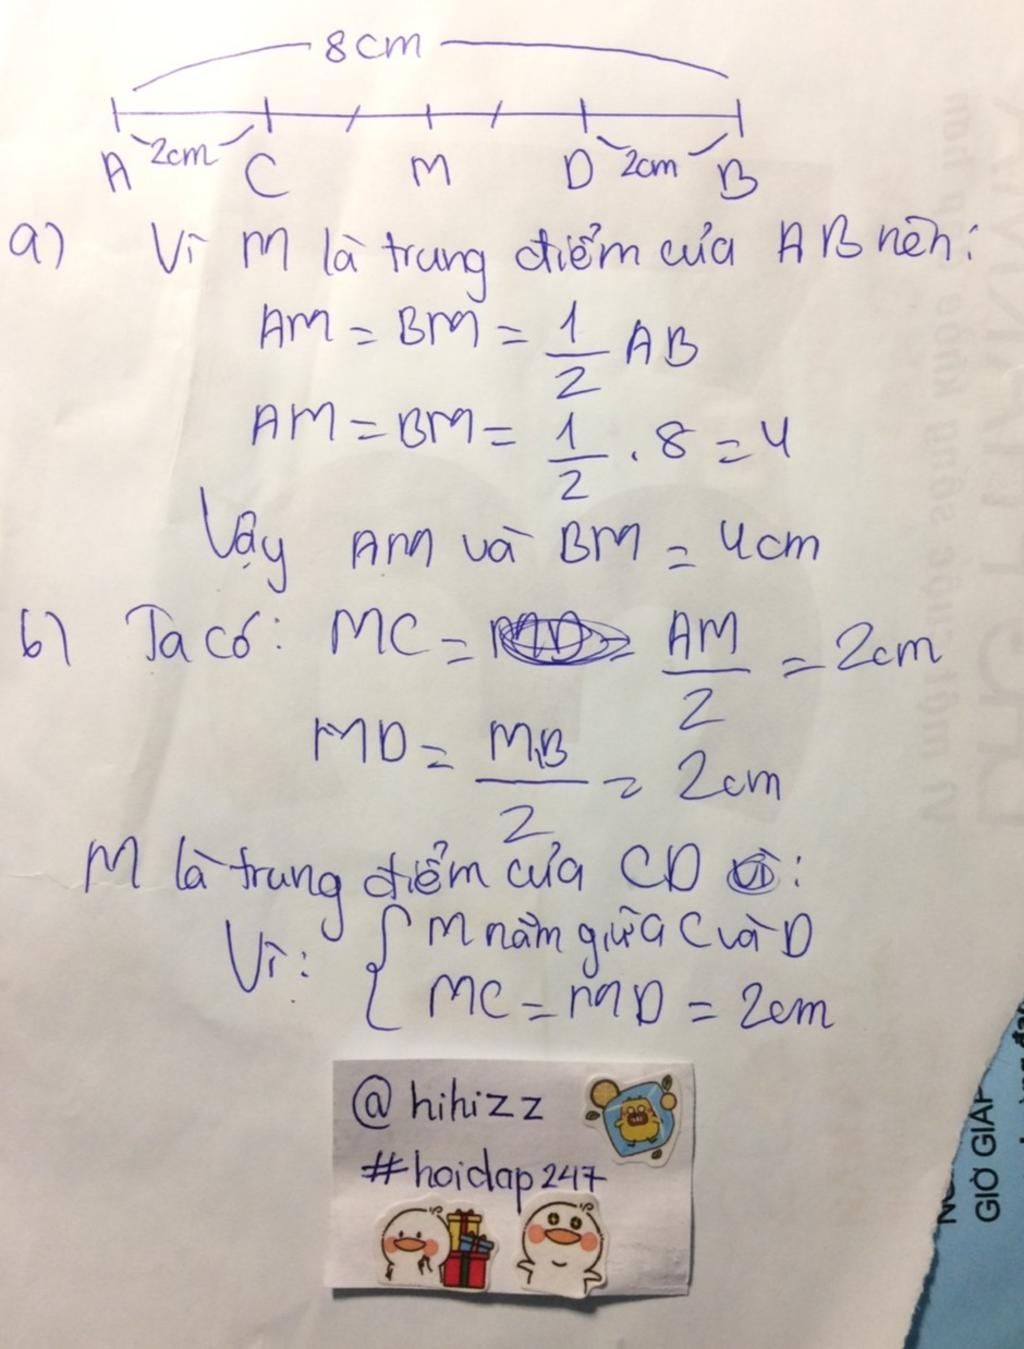 8cm
A 2cm C M D 2cm B
a) Vì M là trung điểm của AB nên:
AM = BM = 1/2 AB
AM = BM = 1/2 . 8 = 4
Vậy AM và BM = 4cm
b) Ta có: MC = AM/2 = 2cm
MD = MB/2 = 2cm
M là trung điểm của CD :
Vì: { M nằm giữa C và D
MC = MD = 2cm
@hihizz
#hoidap247
GIỜ GIẤP